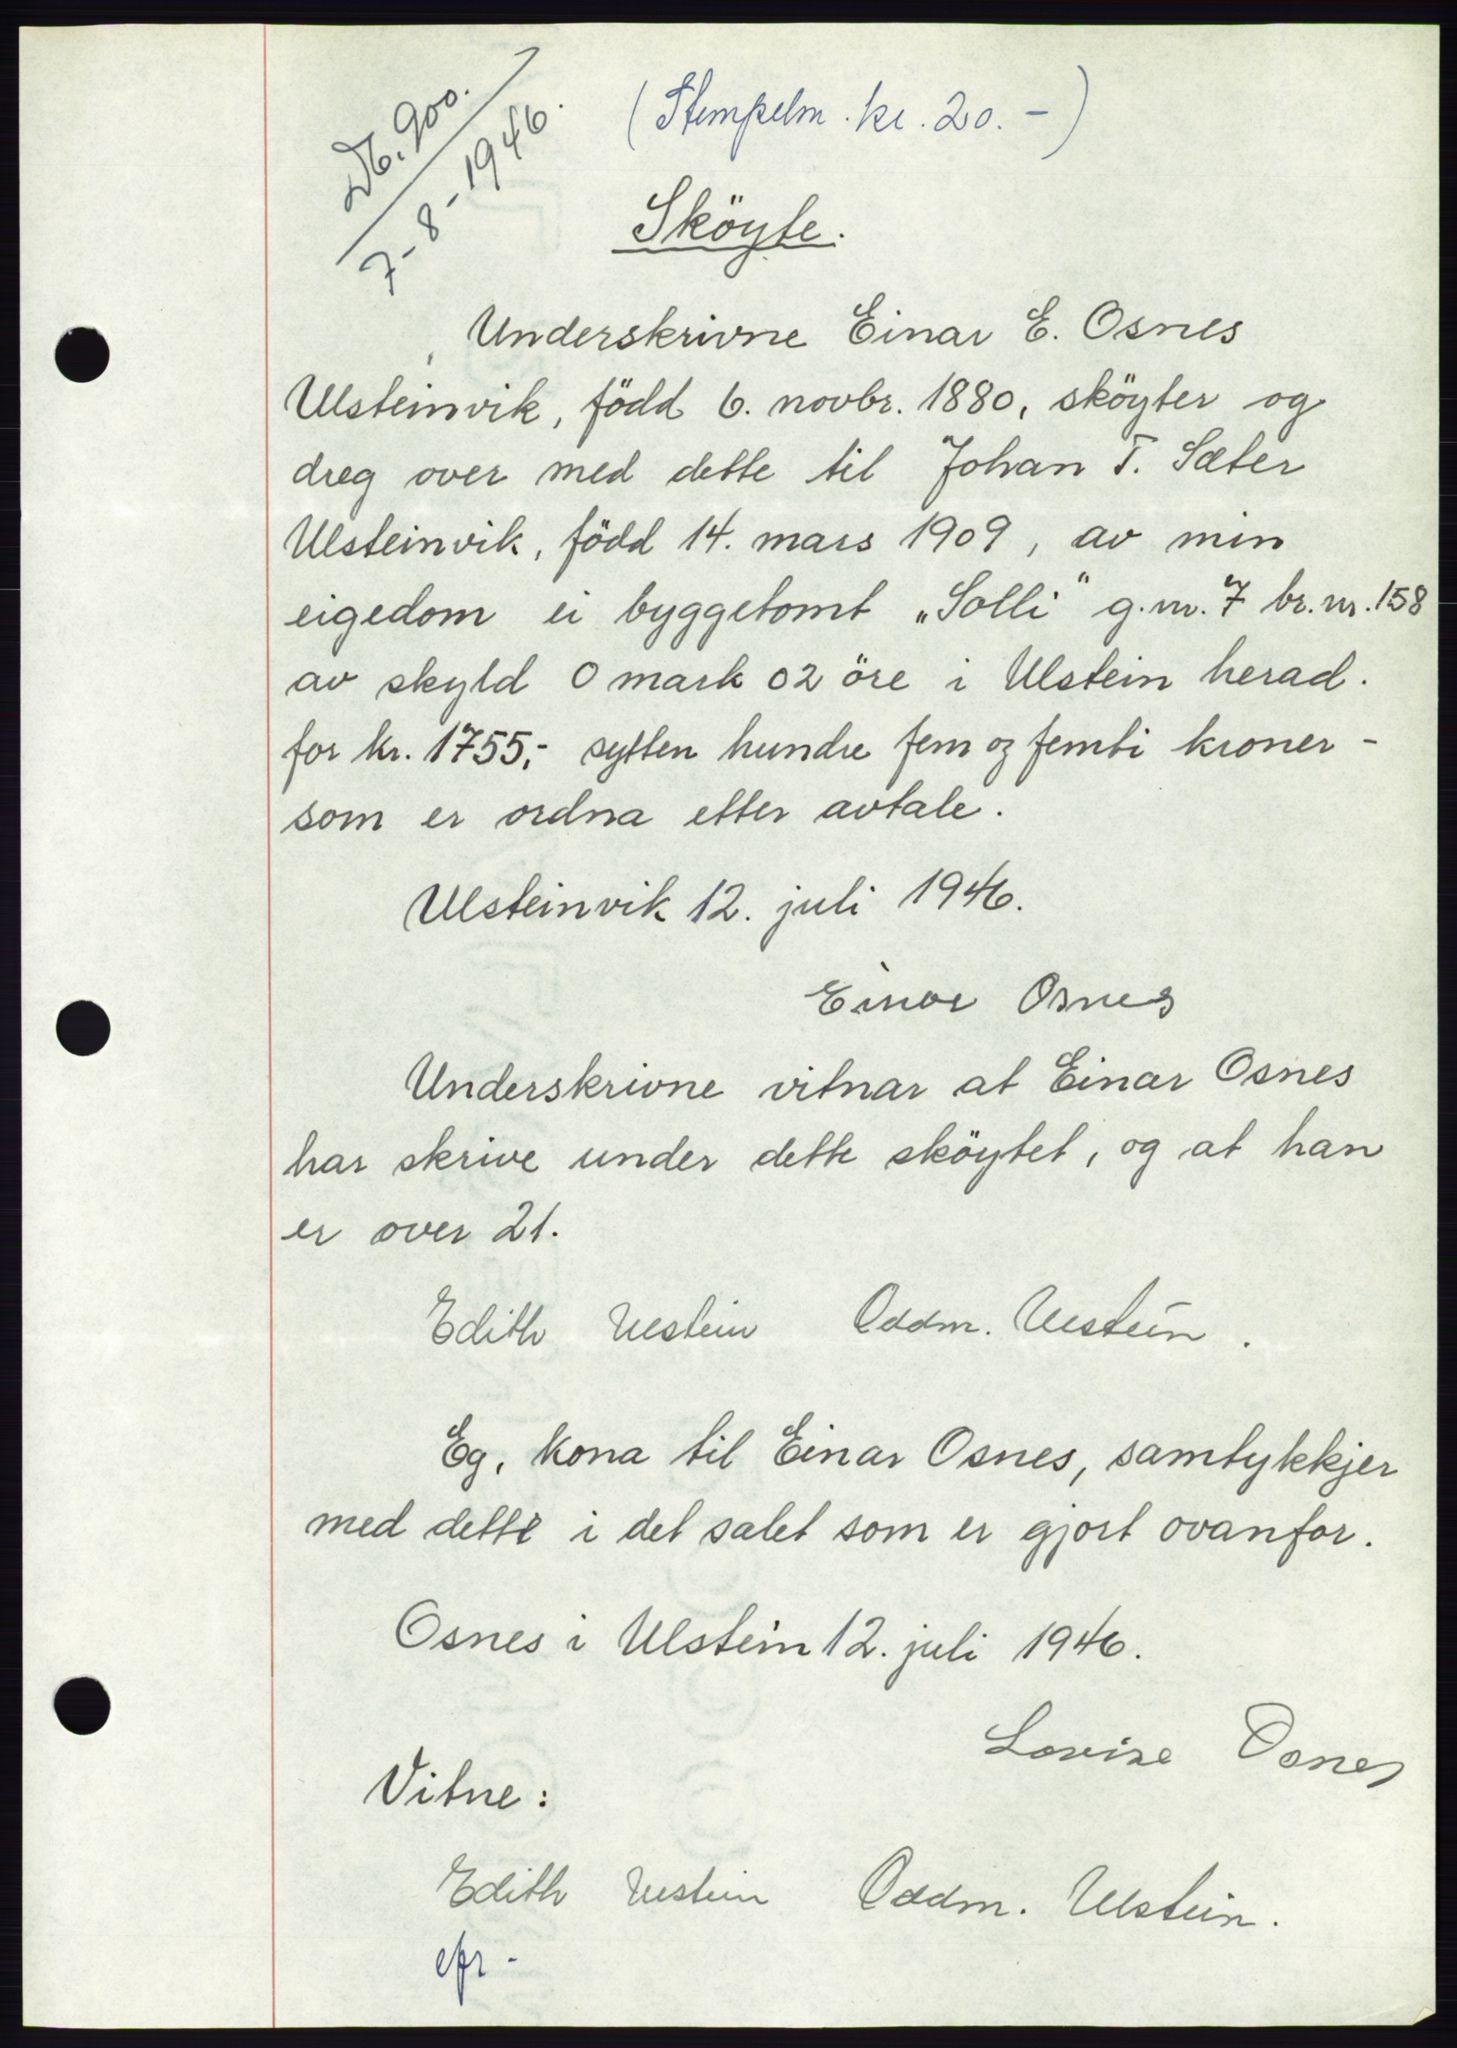 Db. 900.
7-8-1946.
(Stempelm. kr. 20.-)
Sköyte.
Underskrivne Einar E. Osnes
Ulsteinvik, född 6. novbr. 1880, sköyter og
dreg over med dette til Johan T. Sæter
Ulsteinvik, född 14. mars 1909, av min
eigedom ei byggetomt „Solli" g.nr. 7 br.nr. 158
av skyld 0 mark 02 öre i Ulstein herad.
for kr. 1755,- sytten hundre fem og femti kroner -
som er ordna etter avtale.
Ulsteinvik 12. juli 1946.
Einar Osnes
Underskrivne vitnar at Einar Osnes
har skrive under dette sköytet, og at han
er over 21.
Edith Ulstein Oddm. Ulstein.
Eg, kona til Einar Osnes, samtykkjer
med dette i det salet som er gjort ovanfor.
Osnes i Ulstein 12. juli 1946.
Lovise Osnes
Vitne:
Edith Ulstein Oddm. Ulstein.